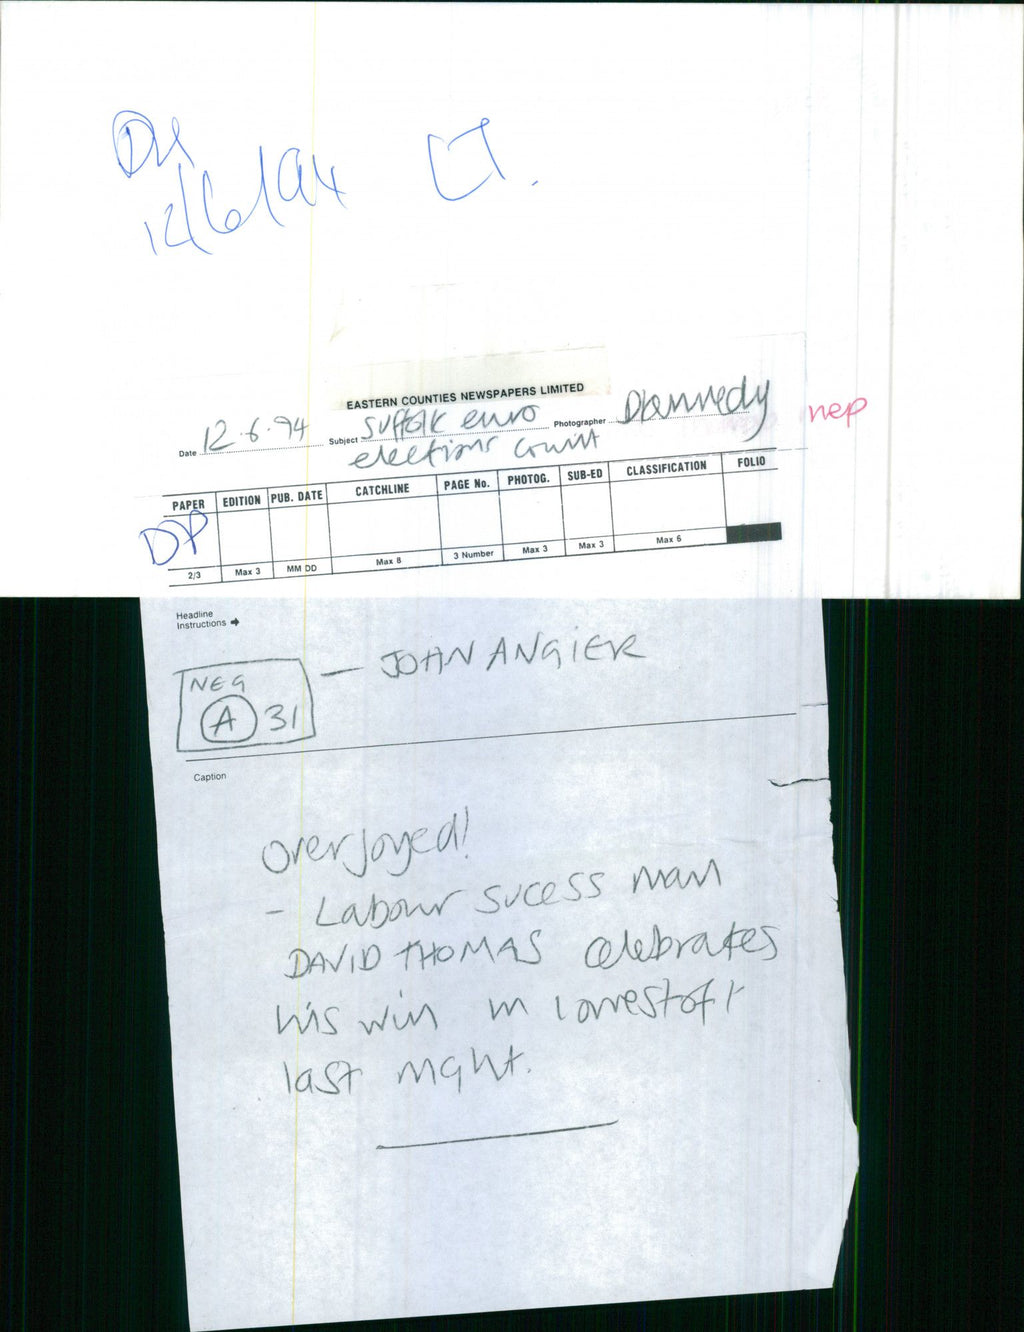 12/6/94
EASTERN COUNTIES NEWSPAPERS LIMITED
Date 12.6.94 Subject Suffolk euro Photographer DKennedy nep
elections count
PAPER EDITION PUB. DATE CATCHLINE PAGE No. PHOTOG. SUB-ED CLASSIFICATION FOLIO
DP
2/3 Max 3 MM DD Max 8 3 Number Max 3 Max 3 Max 6
Headline
Instructions →
NEG — JOHN ANGIER
A 31
Caption
Overjoyed!
- Labour sucess man
DAVID THOMAS celebrates
his win in Lowestoft
last night.